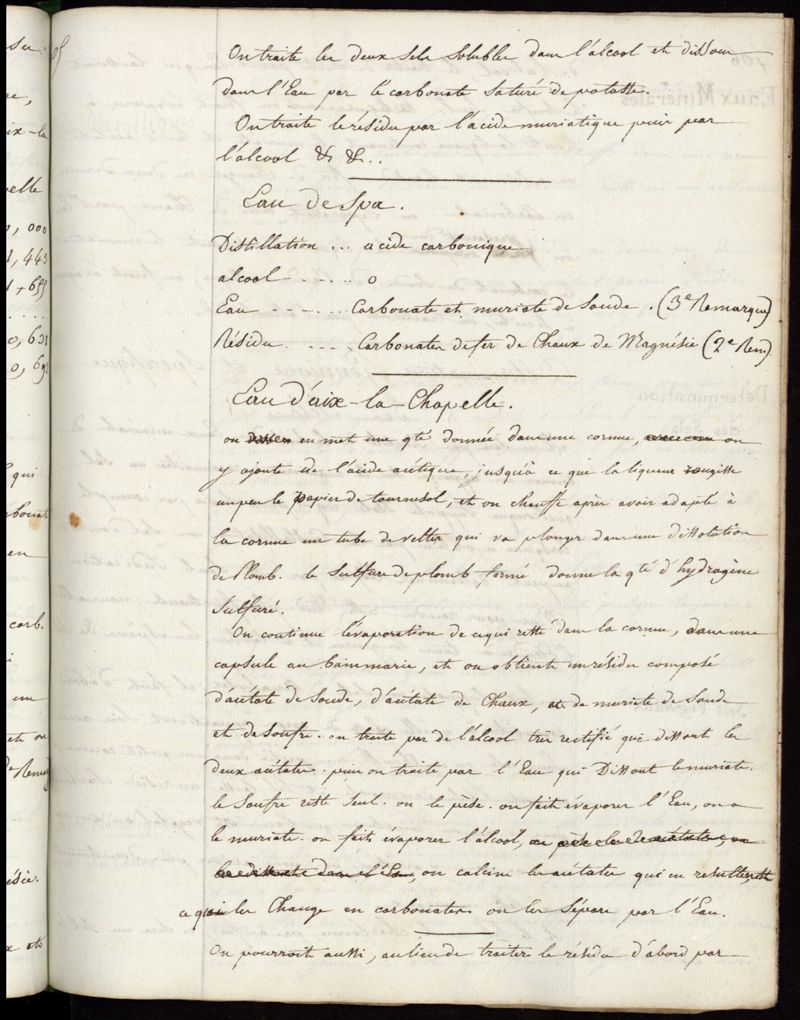 On traite les deux sels solubles dans l'alcool et dissous
dans l'Eau par le carbonate saturé de potasse.
On traite le résidu par l'acide muriatique puis par
l'alcool &c &c..
Eau de Spa.
Distillation ... acide carbonique
alcool - - - ... 0
Eau - - - ... Carbonate et muriate de Soude . (3e Remarque)
Résidu. ... Carbonates de fer de Chaux de Magnésie (2e Rem)
Eau d'aix-la-Chapelle.
on en met une qté donnée dans une cornue, on
y ajoute de l'acide acétique, jusqu'à ce que la liqueur rougisse
un peu le papier de tournesol, et on chauffe après avoir adapté à
la cornue un tube de velter qui va plonger dans une dissolution
de Plomb. le Sulfure de plomb formé donne la qté d'hydrogène
Sulfuré.
On continue l'évaporation de ce qui reste dans la cornue, dans une
capsule au bainmarie, et on obtient un résidu composé
d'acétate de Soude, d'acétate de Chaux, de muriate de Soude
et de Soufre. on traite par de l'alcool très rectifié qui dissout les
deux acétates. puis on traite par l'Eau qui Dissout le muriate.
le Soufre reste Seul. on le pèse. on fait évaporer l'Eau, on a
le muriate. on fait évaporer l'alcool,
on calcine les acétates qui en resultent
ce qui les Change en carbonates on les Sépare par l'Eau.
On pourroit aussi, au lieu de traiter le résidu d'abord par